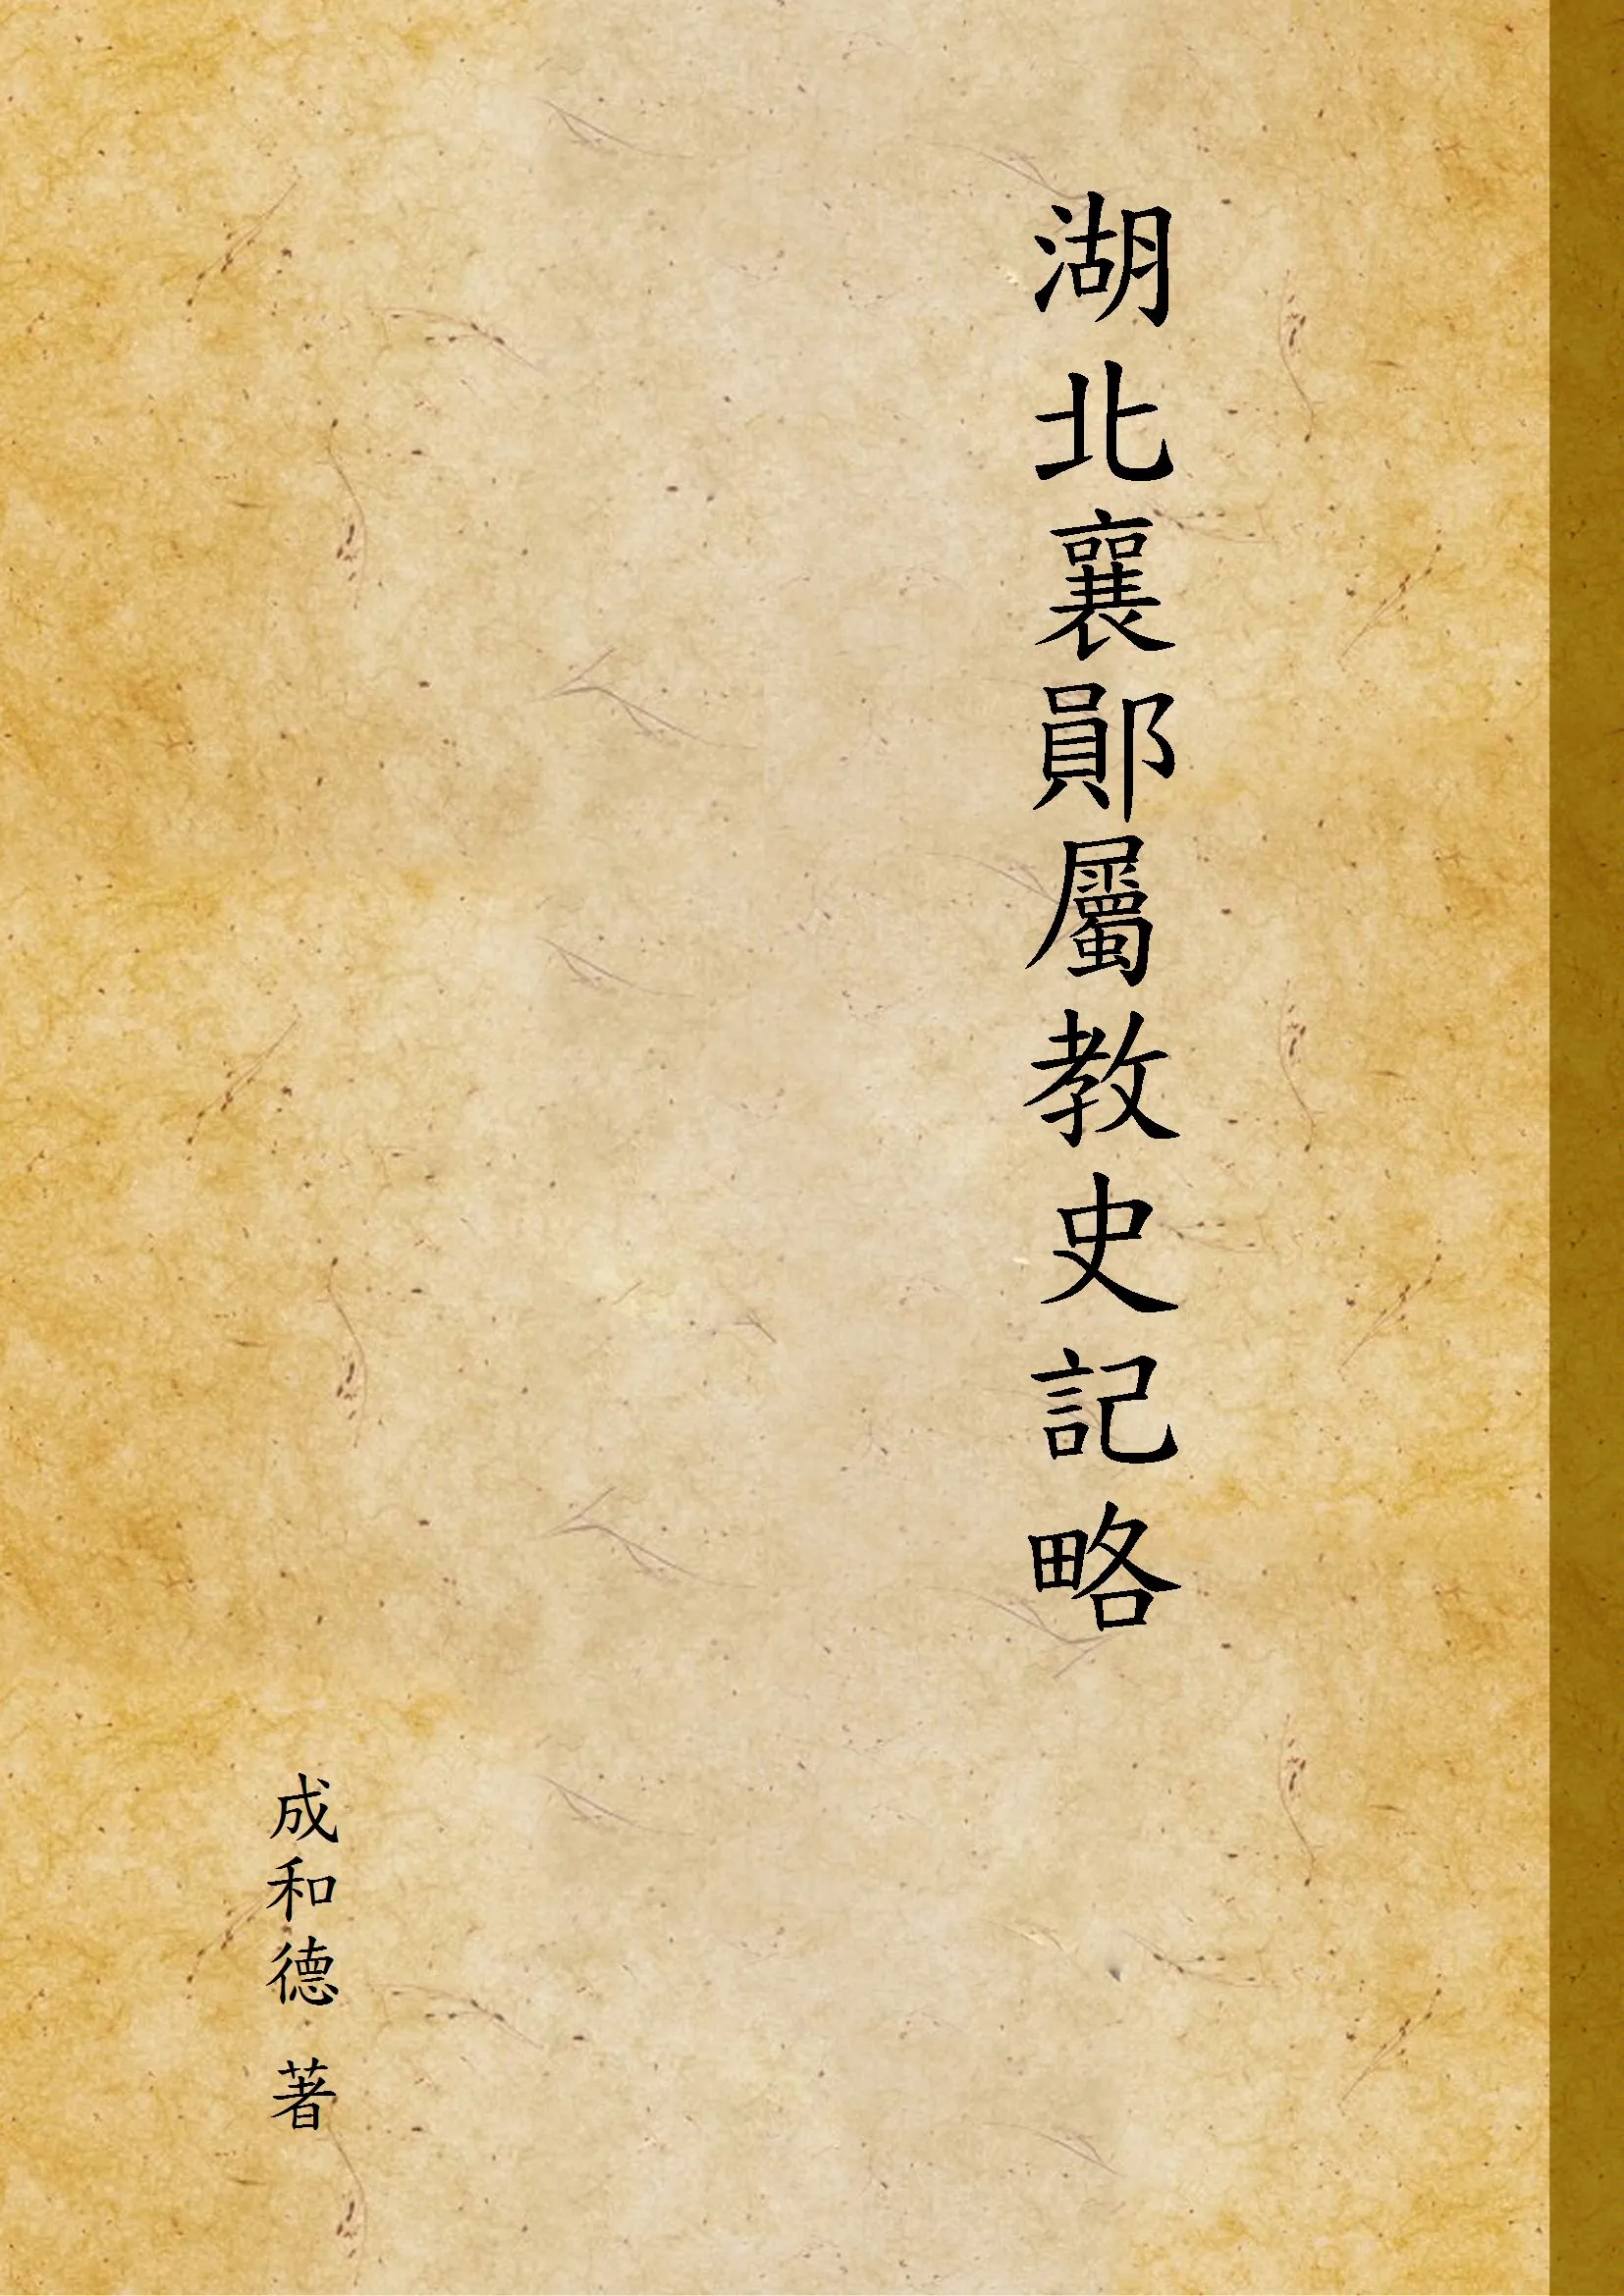 湖北襄鄖屬教史記略
成和德 著